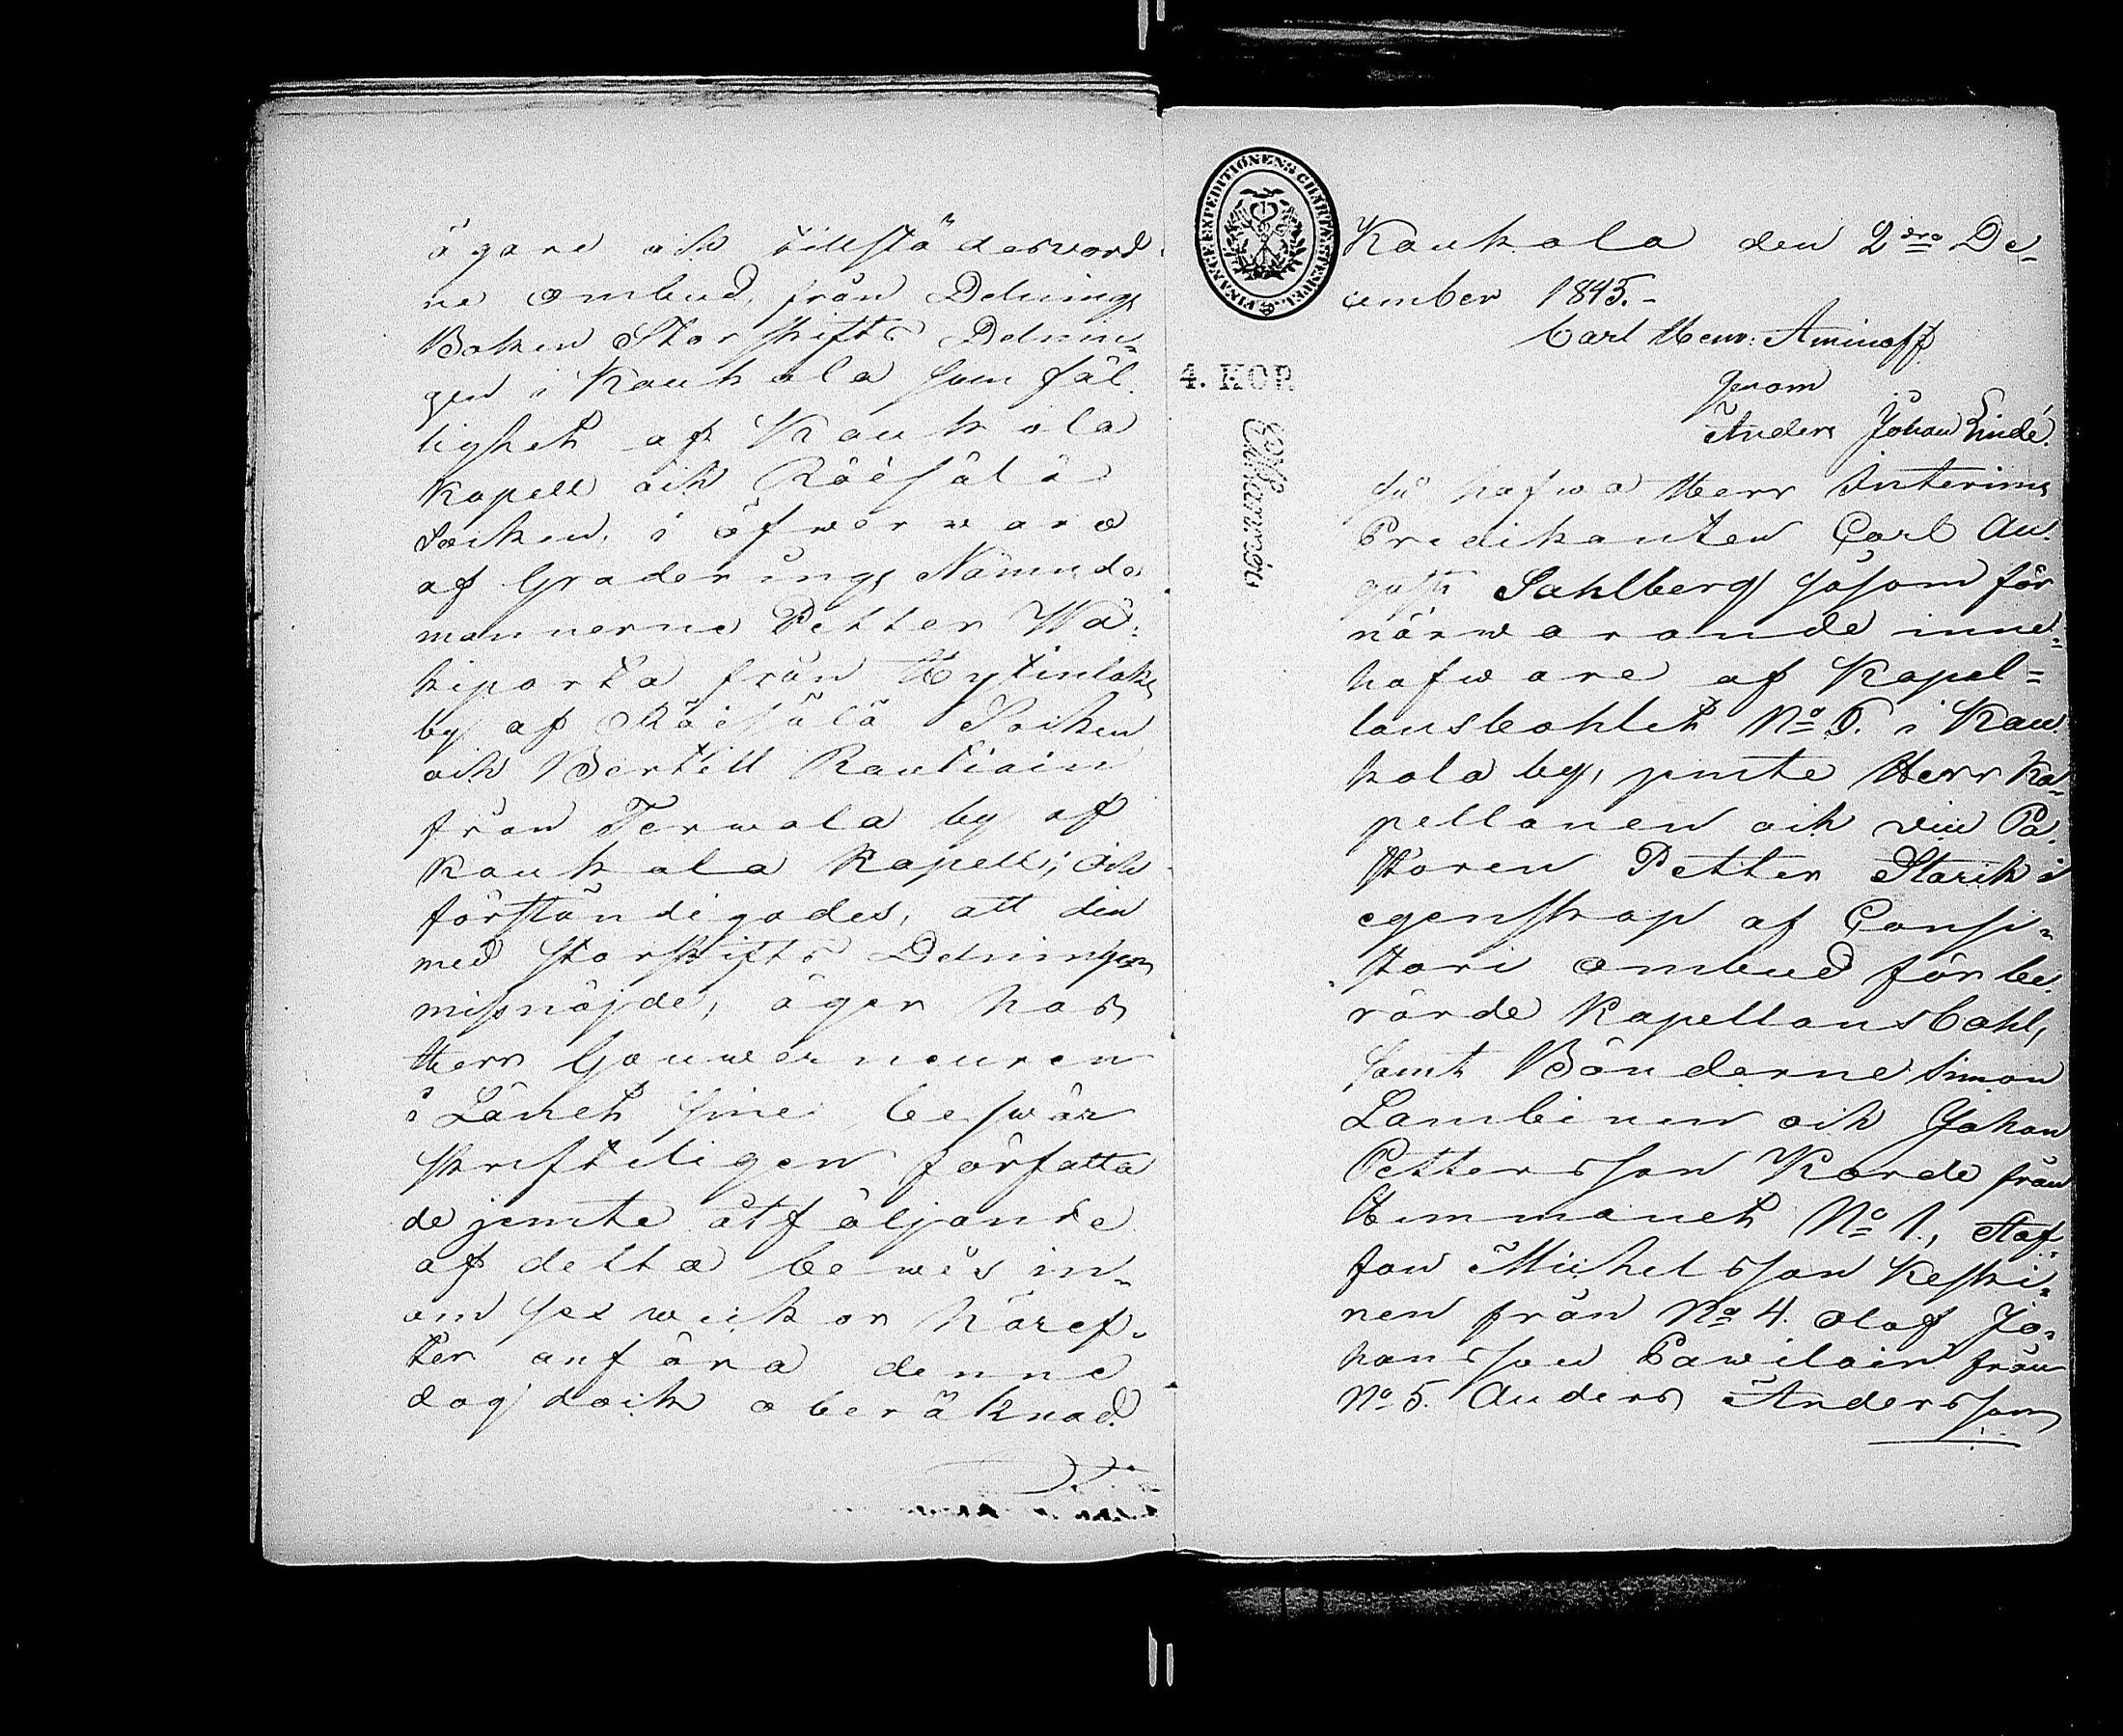 ägare och tillstädesvord
ne ombud, från Delnings
Boken Storskifts Delnin-
gen i Kaukola samfäl-
lighet af Kaukola
Kapell och Räisälä
Socken, i öfwerwaro
af Graderings Nämnde
mannerne Petter Wä-
kiparta från Hytinlaks
by af Räisälä Socken
och Bertill Rautiain
från Terwola by af
Kaukola Kapell; Och
förständigades, att den
med Storskifts Delningen
missnöjde, äger hos
Herr Gouwerneuren
i Länet sine beswär
skrifteligen författa
de jemte åtföljande
af detta bewis in-
om sex weckor häref-
ter anföra denne
dag dock oberäknad.
FINANCE EXPEDITIONENS CHARTÆ STEMPEL
4. KOP.
Kaukola den 2dra De-
cember 1845.-
Carl Henr: Aminoff
genom
Anders Johan Lindé.
Så hafwa Herr Interims
Predikanten Carl Au-
gust Sahlberg såsom för
närwarande inne-
hafware af Kapel-
lansbohlet No 6. i Kau-
kola by, jemte Herr Ka-
pellanen och vice Pa-
storen Petter Starck i
egenskap af Consi-
stori ombud för be-
rörde Kapellans Bohl,
samt Bönderne Simon
Lambinen och Johan
Pettersson Korde från
Hemmanet No 1., Staf-
fan Michelsson Keski-
nen från No 4. Olof Jo-
hansson Pawilain från
No 5. Anders Andersson